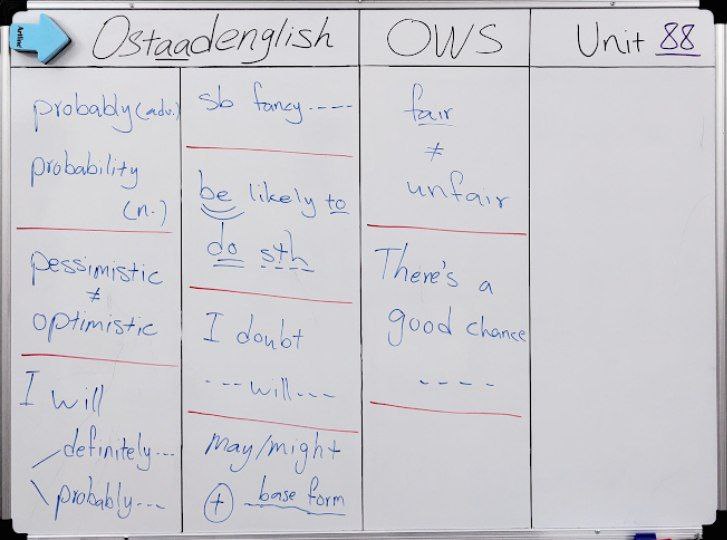 Ostaadenglish
OWS
Unit 88
probably (adv.)
probability
(n.)
pessimistic
≠
optimistic
I will
definitely...
probably...
sb fancy----
be likely to
do sth
I doubt
---will---
may/might
+ base form
fair
≠
unfair
There's a
good chance
----